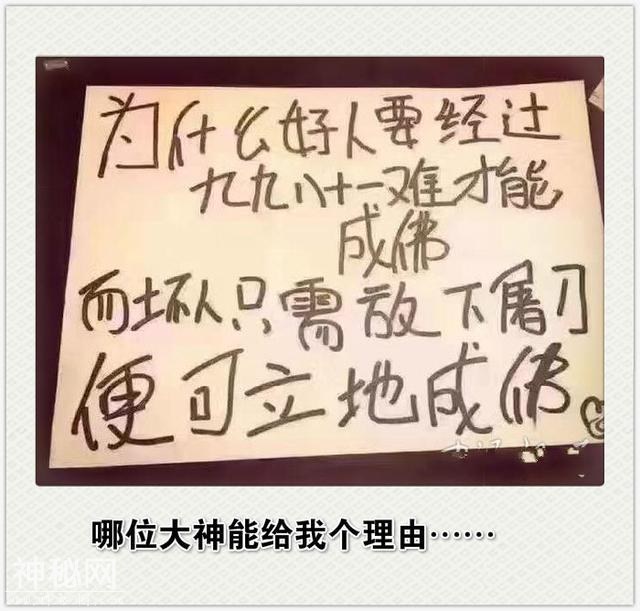 为什么好人要经过
九九八十一难才能
成佛
而坏人只需放下屠刀
便可立地成佛
哪位大神能给我个理由……
神秘网